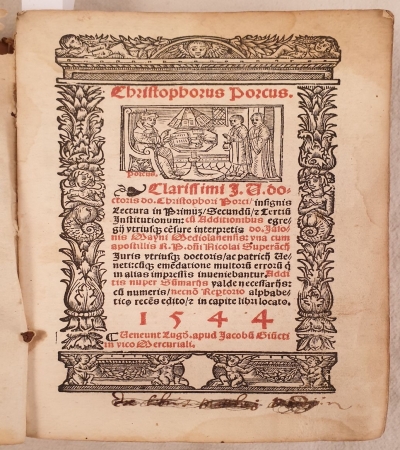 Christophorus Porcus.
Porcus.
Clarissimi J. U. do-
ctoris do. Christophori Porci/ insignis
Lectura in Primuʒ/ Secundũ/ ⁊ Tertiũ
Institutionum: cũ Additionibus egre-
gij vtriusqʒ cẽsure interpretis do. Jaso-
nis Mayni Mediolanensis: vna cum
apostillis R. P. dñi Nicolai Superãtij
Juris vtriusqʒ doctoris/ ac patricij Ve-
neti: cũqʒ emẽdatione multorũ errorũ q̃
in alijs impressis inueniebantur. Addi
tis nuper Sũmarijs valde necessarijs:
cũ numeris/ necnõ Reꝑtorio alphabe-
ticqʒ recẽs edito/ ⁊ in capite libri locato.
1 5 4 4
Veneunt Lugd. apud Jacobũ Giũcti
in vico Mercuriali.